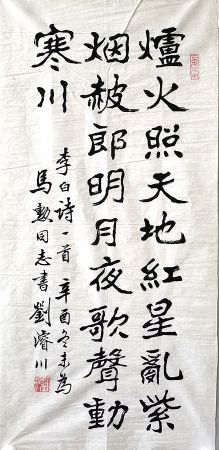 爐火照天地紅星亂紫
烟赧郎明月夜歌聲動
寒川
李白诗一首 辛酉冬末為
馬勲同志書 劉濬川